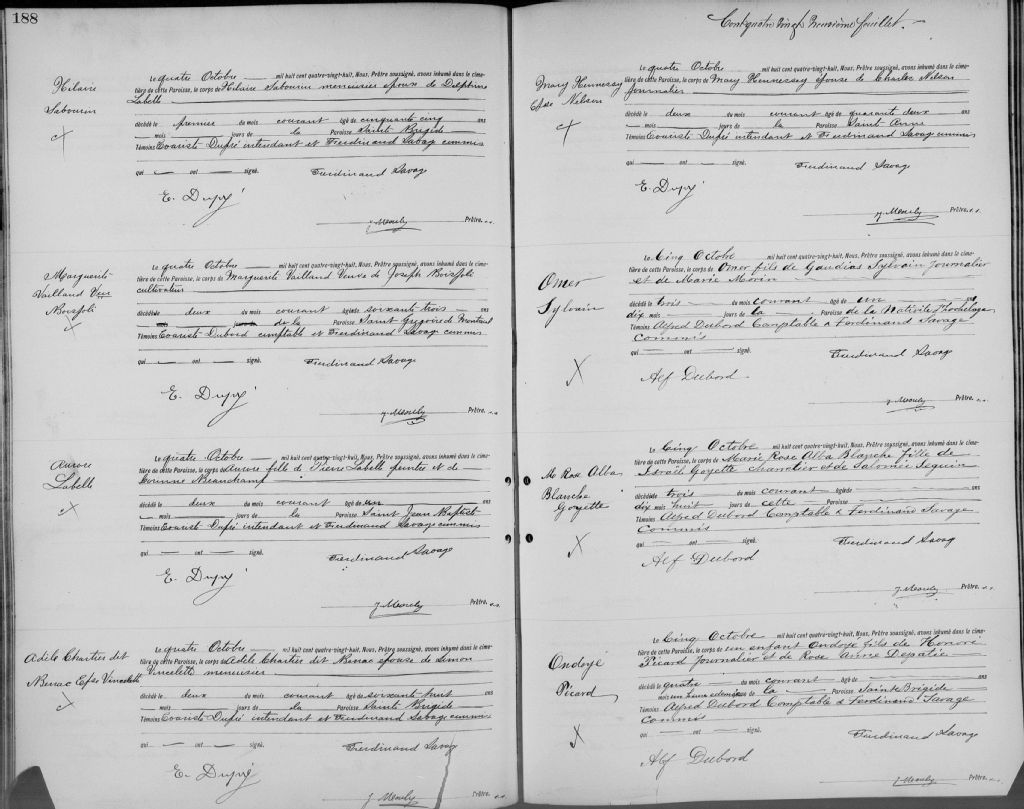 188
Hilaire
Sabourin
Le quatre Octobre mil huit cent quatre-vingt-huit, Nous, Prêtre soussigné, avons inhumé dans le cime-
tière de cette Paroisse, le corps de Hilaire Sabourin menuisier époux de Delphine
Labelle
décédé le premier du mois courant âgé de cinquante cinq ans
mois jours de la Paroisse Sainte Brigide
Témoins Evariste Dupré intendant et Ferdinand Savage commis
qui ont signé. Ferdinand Savage
E. Dupré
Prêtre. s.s.
Marguerite
Vailland Vve
Boisjoli
Le quatre Octobre mil huit cent quatre-vingt-huit, Nous, Prêtre soussigné, avons inhumé dans le cime-
tière de cette Paroisse, le corps de Marguerite Vailland Veuve de Joseph Boisjoli
cultivateur
décédé le deux du mois courant âgé de soixante trois ans
mois jours de la Paroisse Saint Grégoire de Montreal
Témoins Evariste Dubord comptable et Ferdinand Savage commis
qui ont signé. Ferdinand Savage
E. Dupré
Prêtre. s.s.
Aurore
Labelle
Le quatre Octobre mil huit cent quatre-vingt-huit, Nous, Prêtre soussigné, avons inhumé dans le cime-
tière de cette Paroisse, le corps de Aurore fille de Pierre Labelle peintre et de
Corinne Beauchamp
décédé le deux du mois courant âgé de un ans
mois jours de la Paroisse Saint Jean Baptist
Témoins Evariste Dupré intendant et Ferdinand Savage commis
qui ont signé. Ferdinand Savage
E. Dupré
Prêtre. s.s.
Adèle Chartier dit
Benac Epse Vinelette
Le quatre Octobre mil huit cent quatre-vingt-huit, Nous, Prêtre soussigné, avons inhumé dans le cime-
tière de cette Paroisse, le corps de Adèle Chartier dit Benac épouse de Simon
Vinelette menuisier
décédé le deux du mois courant âgé de soixante huit ans
mois jours de la Paroisse Sainte Brigide
Témoins Evariste Dupré intendant et Ferdinand Savage commis
qui ont signé. Ferdinand Savage
E. Dupré
Prêtre. s.s.
Cent quatre vingt neuvième feuillet.
Mary Hennessy
Epse Nelson
Le quatre Octobre mil huit cent quatre-vingt-huit, Nous, Prêtre soussigné, avons inhumé dans le cime-
tière de cette Paroisse, le corps de Mary Hennessey épouse de Charles Nelson
Journalier
décédé le deux du mois courant âgé de quarante deux ans
mois jours de la Paroisse Saint Anne
Témoins Evariste Dupré intendant et Ferdinand Savage commis
qui ont signé. Ferdinand Savage
E. Dupré
Prêtre. s.s.
Omer
Sylvain
Le Cinq Octobre mil huit cent quatre-vingt-huit, Nous, Prêtre soussigné, avons inhumé dans le cime-
tière de cette Paroisse, le corps de Omer fils de Gaudias Sylvain Journalier
et de Marie Morin
décédé le trois du mois courant âgé de un ans
dix mois jours de la Paroisse de la Nativité d'Hochelaga
Témoins Alfred Dubord Comptable & Ferdinand Savage
Commis
qui ont signé. Ferdinand Savage
Alf Dubord
Prêtre. s.s.
M Rose Alba
Blanche
Goyette
Le Cinq Octobre mil huit cent quatre-vingt-huit, Nous, Prêtre soussigné, avons inhumé dans le cime-
tière de cette Paroisse, le corps de Marie Rose Alba Blanche fille de
Israël Goyette charretier et de Salomée Seguin
décédé le trois du mois courant âgé de ans
dix mois huit jours de cette Paroisse
Témoins Alfred Dubord Comptable & Ferdinand Savage
Commis
qui ont signé. Ferdinand Savage
Alf Dubord
Prêtre. s.s.
Ondoyé
Picard
Le Cinq Octobre mil huit cent quatre-vingt-huit, Nous, Prêtre soussigné, avons inhumé dans le cime-
tière de cette Paroisse, le corps de un enfant Ondoyé fils de Honoré
Picard Journalier et de Rose Anne Depatie
décédé le quatre du mois courant âgé de ans
mois une heure et demie de la Paroisse Sainte Brigide
Témoins Alfred Dubord Comptable & Ferdinand Savage
Commis
qui ont signé. Ferdinand Savage
Alf Dubord
Prêtre. s.s.